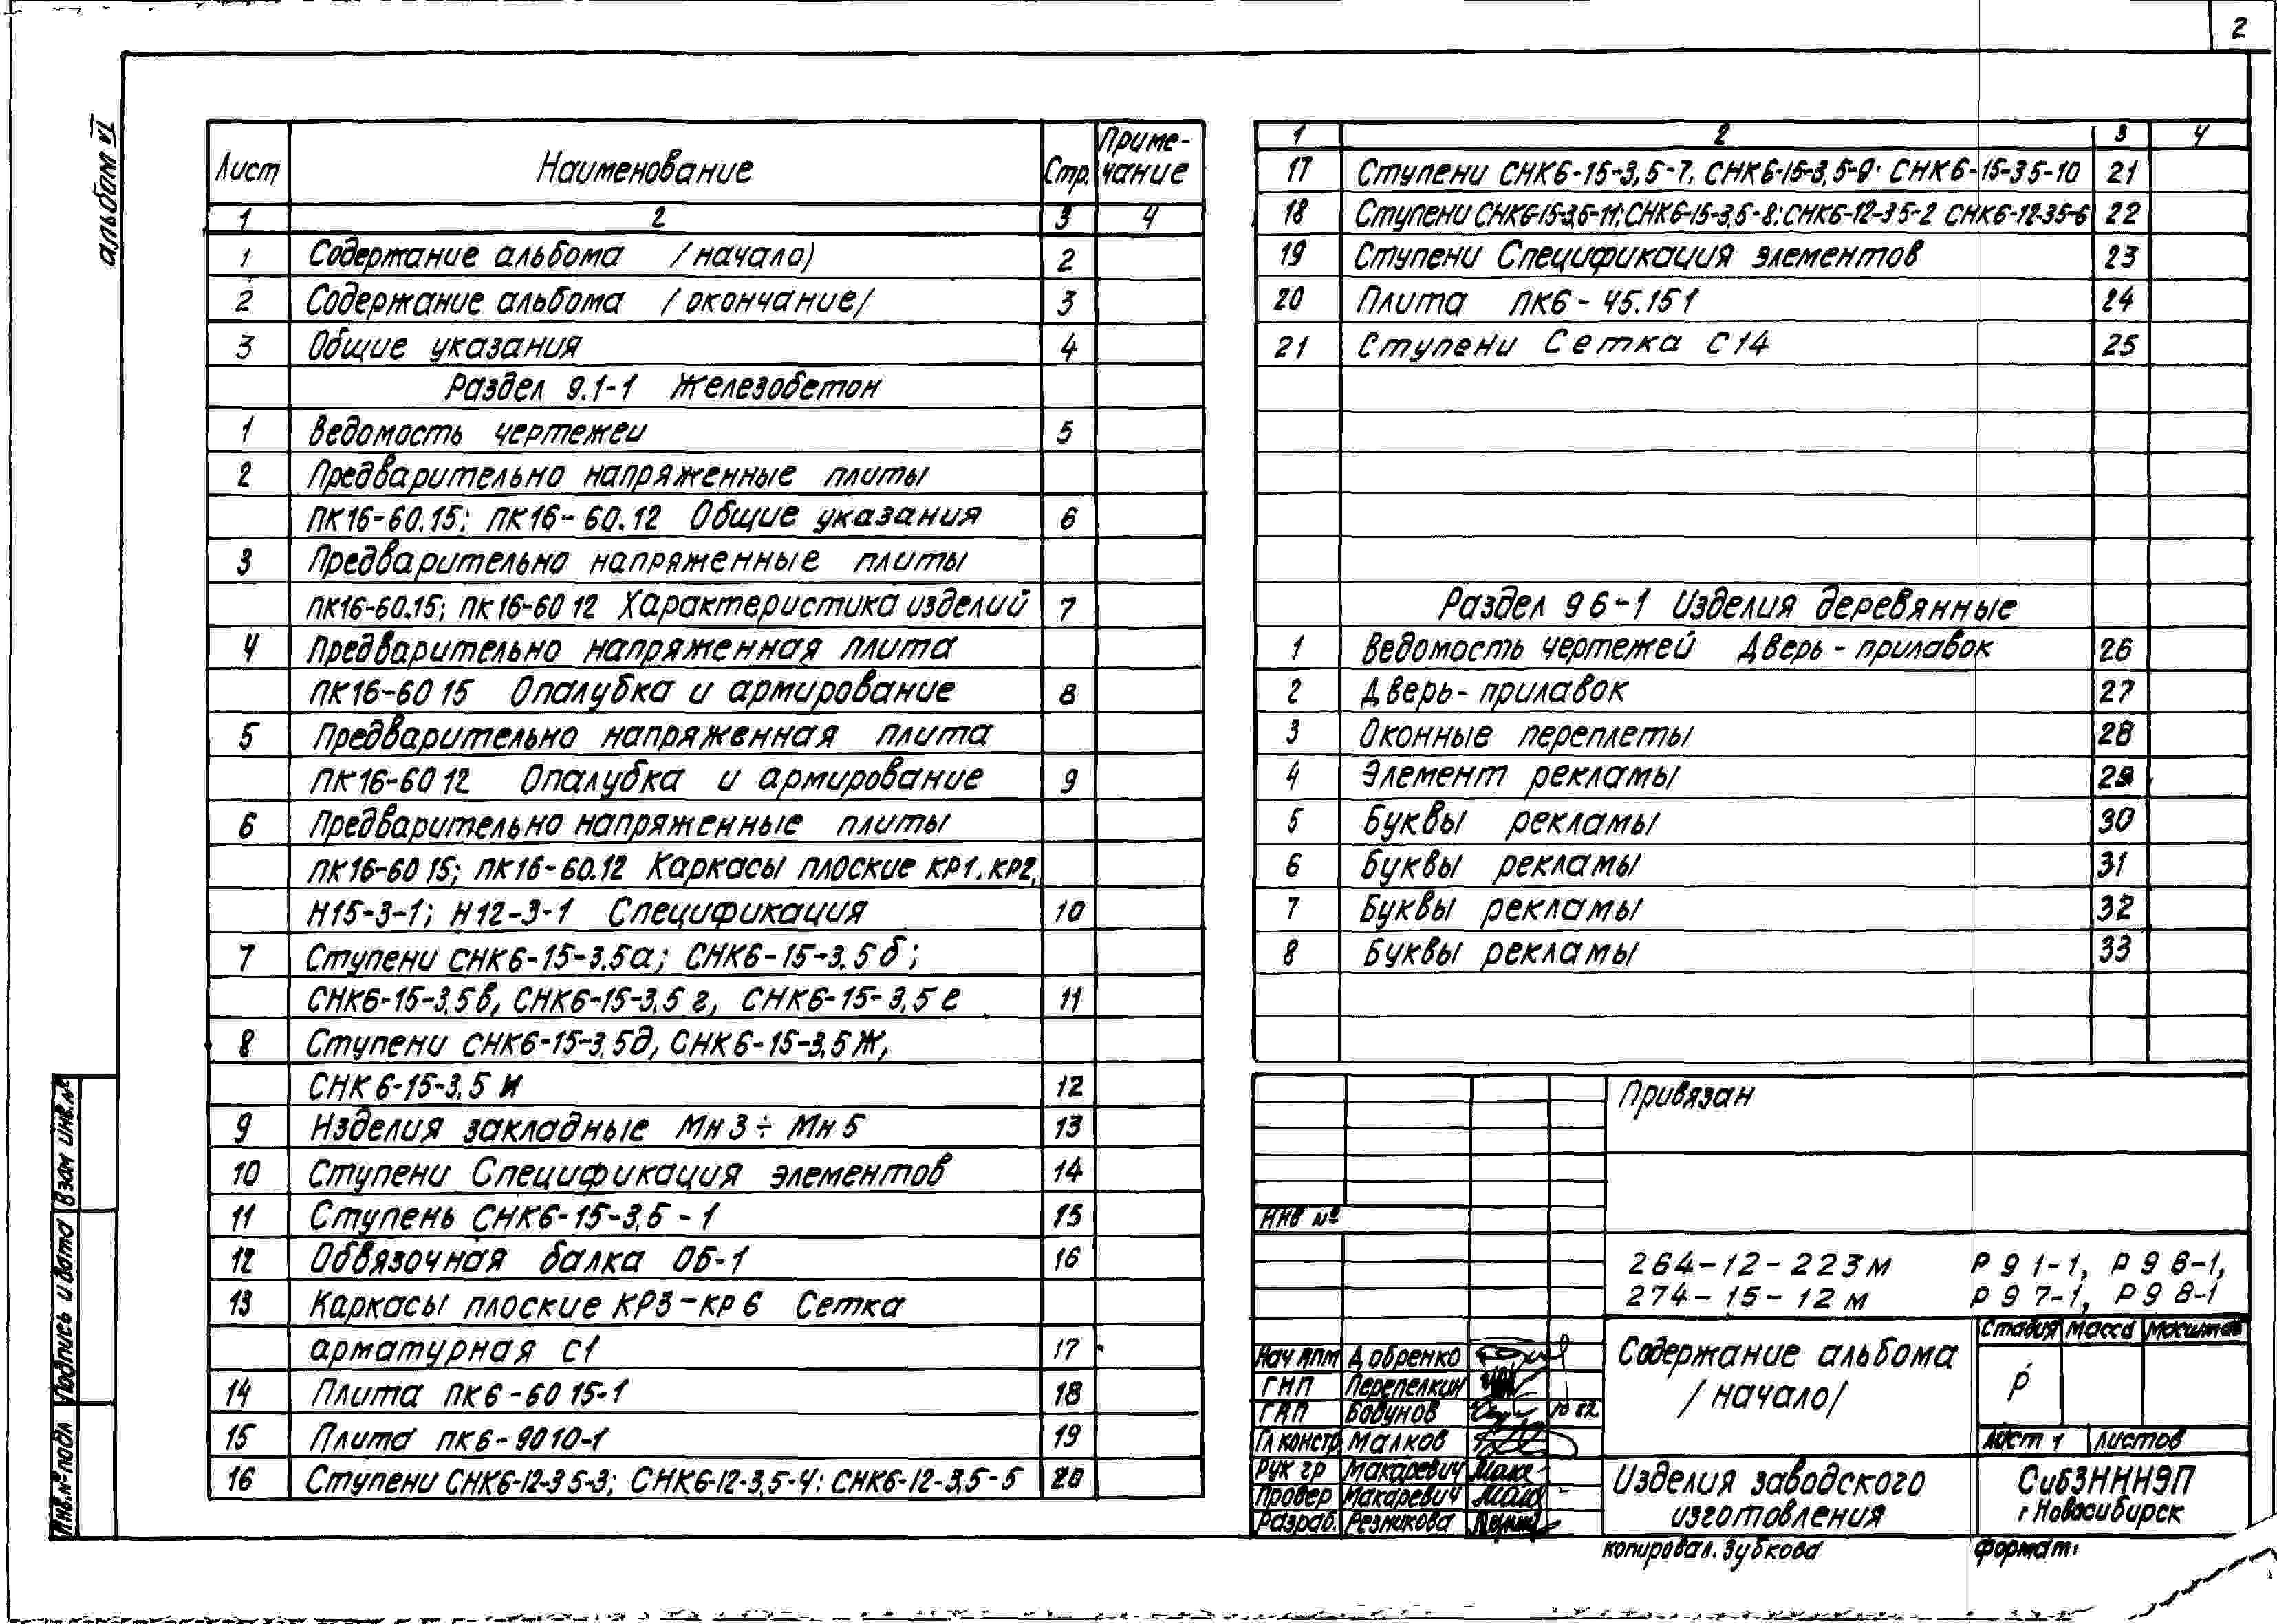 2
альбом VI
Лист Наименование Стр. Приме-чание
1 2 3 4
1 Содержание альбома /начало) 2
2 Содержание альбома /окончание/ 3
3 Общие указания 4
Раздел 9.1-1 Железобетон
1 Ведомость чертежей 5
2 Предварительно напряженные плиты
ПК16-60.15; ПК16-60.12 Общие указания 6
3 Предварительно напряженные плиты
ПК16-60.15; ПК16-60 12 Характеристика изделий 7
4 Предварительно напряженная плита
ПК16-60 15 Опалубка и армирование 8
5 Предварительно напряженная плита
ПК16-60 12 Опалубка и армирование 9
6 Предварительно напряженные плиты
ПК16-60 15; ПК16-60.12 Каркасы плоские КР1, КР2,
Н15-3-1; Н12-3-1 Спецификация 10
7 Ступени СНК6-15-3.5а; СНК6-15-3.5б;
СНК6-15-3,5в, СНК6-15-3,5г, СНК6-15-3,5е 11
8 Ступени СНК6-15-3,5д, СНК6-15-3,5ж,
СНК6-15-3,5и 12
9 Изделия закладные Мн3÷Мн5 13
10 Ступени Спецификация элементов 14
11 Ступень СНК6-15-3,5-1 15
12 Обвязочная балка ОБ-1 16
13 Каркасы плоские КР3-КР6 Сетка
арматурная С1 17
14 Плита ПК6-60 15-1 18
15 Плита ПК6-90 10-1 19
16 Ступени СНК6-12-3 5-3; СНК6-12-3,5-4; СНК6-12-3,5-5 20
1 2 3 4
17 Ступени СНК6-15-3,5-7, СНК6-15-3,5-9; СНК6-15-3 5-10 21
18 Ступени СНК6-15-3,5-11; СНК6-15-3,5-8; СНК6-12-3 5-2 СНК6-12-3 5-6 22
19 Ступени Спецификация элементов 23
20 Плита ПК6-45.15 1 24
21 Ступени Сетка С14 25
Раздел 9 6-1 Изделия деревянные
1 Ведомость чертежей Дверь-прилавок 26
2 Дверь-прилавок 27
3 Оконные переплеты 28
4 Элемент рекламы 29
5 Буквы рекламы 30
6 Буквы рекламы 31
7 Буквы рекламы 32
8 Буквы рекламы 33
Привязан
Инв №
264-12-223м Р 9 1-1, Р 9 6-1,
274-15-12м Р 9 7-1, Р 9 8-1
Содержание альбома
/начало/
Стадия Масса Масштаб
Р
Лист 1 Листов
Нач АПМ Добренко
ГИП Перепелкин
ГАП Бодунов 10 82
Гл констр Малков
Рук гр Макаревич
Провер Макаревич
Разраб. Резникова
Изделия заводского
изготовления
СибЗНИИЭП
г Новосибирск
копировал. Зубкова
формат:
Взам инв.№
Подпись и дата
Инв.№ подл